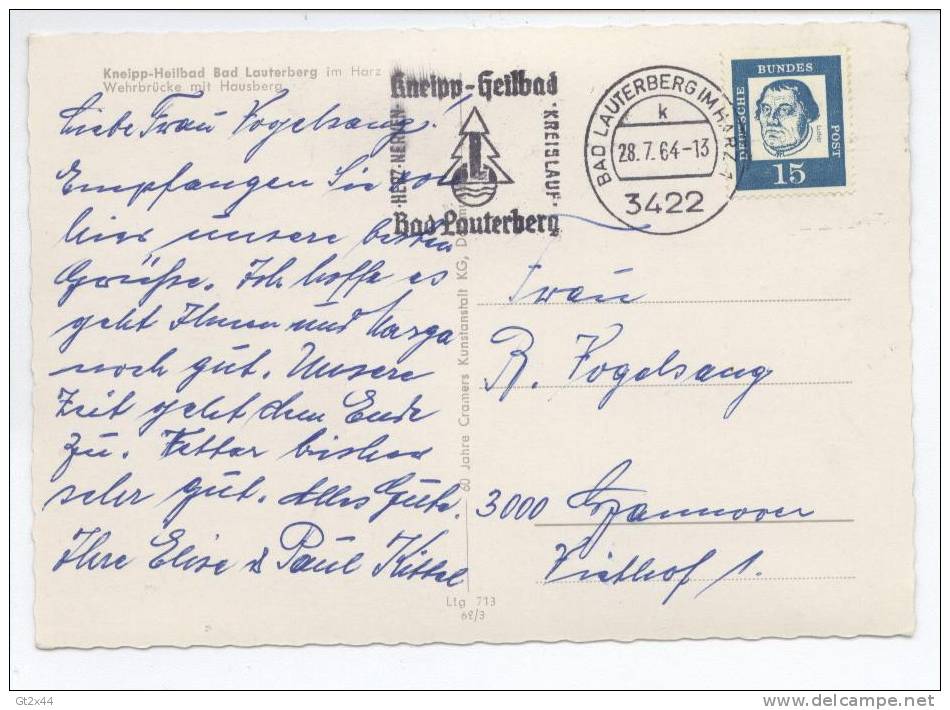 Kneipp-Heilbad Bad Lauterberg im Harz
Wehrbrücke mit Hausberg
Liebe Frau Vogelsang!
Empfangen Sie von
hier unsere besten
Grüße. Ich hoffe es
geht Ihnen und Marga
noch gut. Unsere
Zeit geht dem Ende
zu. Wetter bisher
sehr gut. Alles Gute.
Ihre Elise & Paul Kittel
Kneipp-Heilbad
HERZ·NERVEN·
·KREISLAUF·
Bad Lauterberg
BAD LAUTERBERG IM HARZ 1
k
28.7.64-13
3422
DEUTSCHE
BUNDES
POST
Luther
15
60 Jahre Cramers Kunstanstalt KG,
Frau
R. Vogelsang
3000 Hannover
1.
Ltg 713
62/3
Gt2x44
www.delcampe.net